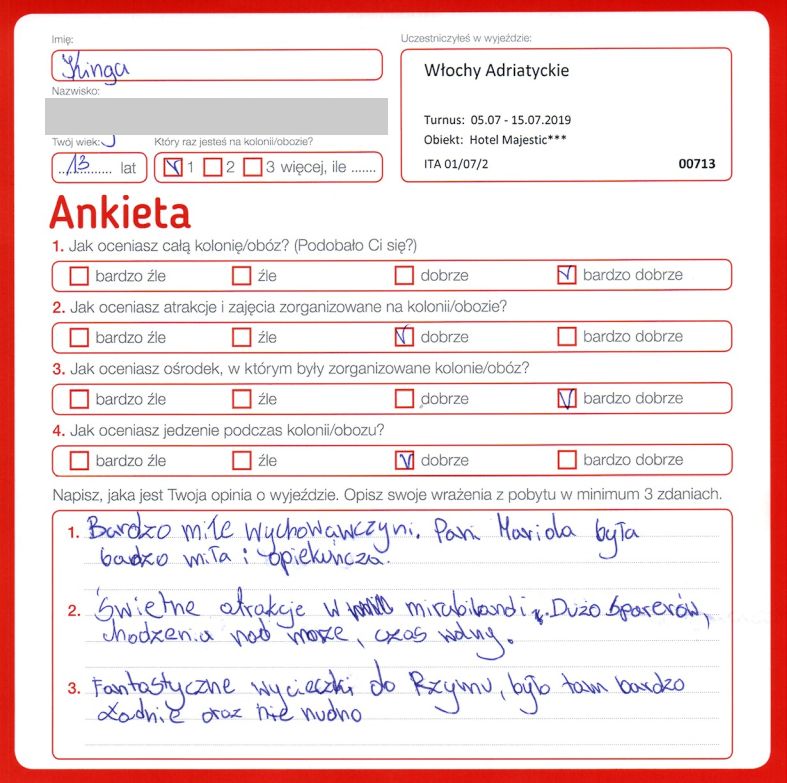 Imię:
Kinga
Nazwisko:
Twój wiek:
13 lat
Który raz jesteś na kolonii/obozie?
1 2 3 więcej, ile .......
Uczestniczyłeś w wyjeździe:
Włochy Adriatyckie
Turnus: 05.07 - 15.07.2019
Obiekt: Hotel Majestic***
ITA 01/07/2 00713
Ankieta
1. Jak oceniasz całą kolonię/obóz? (Podobało Ci się?)
bardzo źle źle dobrze bardzo dobrze
2. Jak oceniasz atrakcje i zajęcia zorganizowane na kolonii/obozie?
bardzo źle źle dobrze bardzo dobrze
3. Jak oceniasz ośrodek, w którym były zorganizowane kolonie/obóz?
bardzo źle źle dobrze bardzo dobrze
4. Jak oceniasz jedzenie podczas kolonii/obozu?
bardzo źle źle dobrze bardzo dobrze
Napisz, jaka jest Twoja opinia o wyjeździe. Opisz swoje wrażenia z pobytu w minimum 3 zdaniach.
1. Bardzo miłe wychowawczyni. Pani Mariola była
badzo miła i opiekuńcza.
2. Świetne atrakcje w mirabilandi. Dużo sparerów,
chodzenia nad moze, czas wolny.
3. Fantastyczne wycieczki do Rzymu, było tam bardzo
ładnie oraz nie nudno